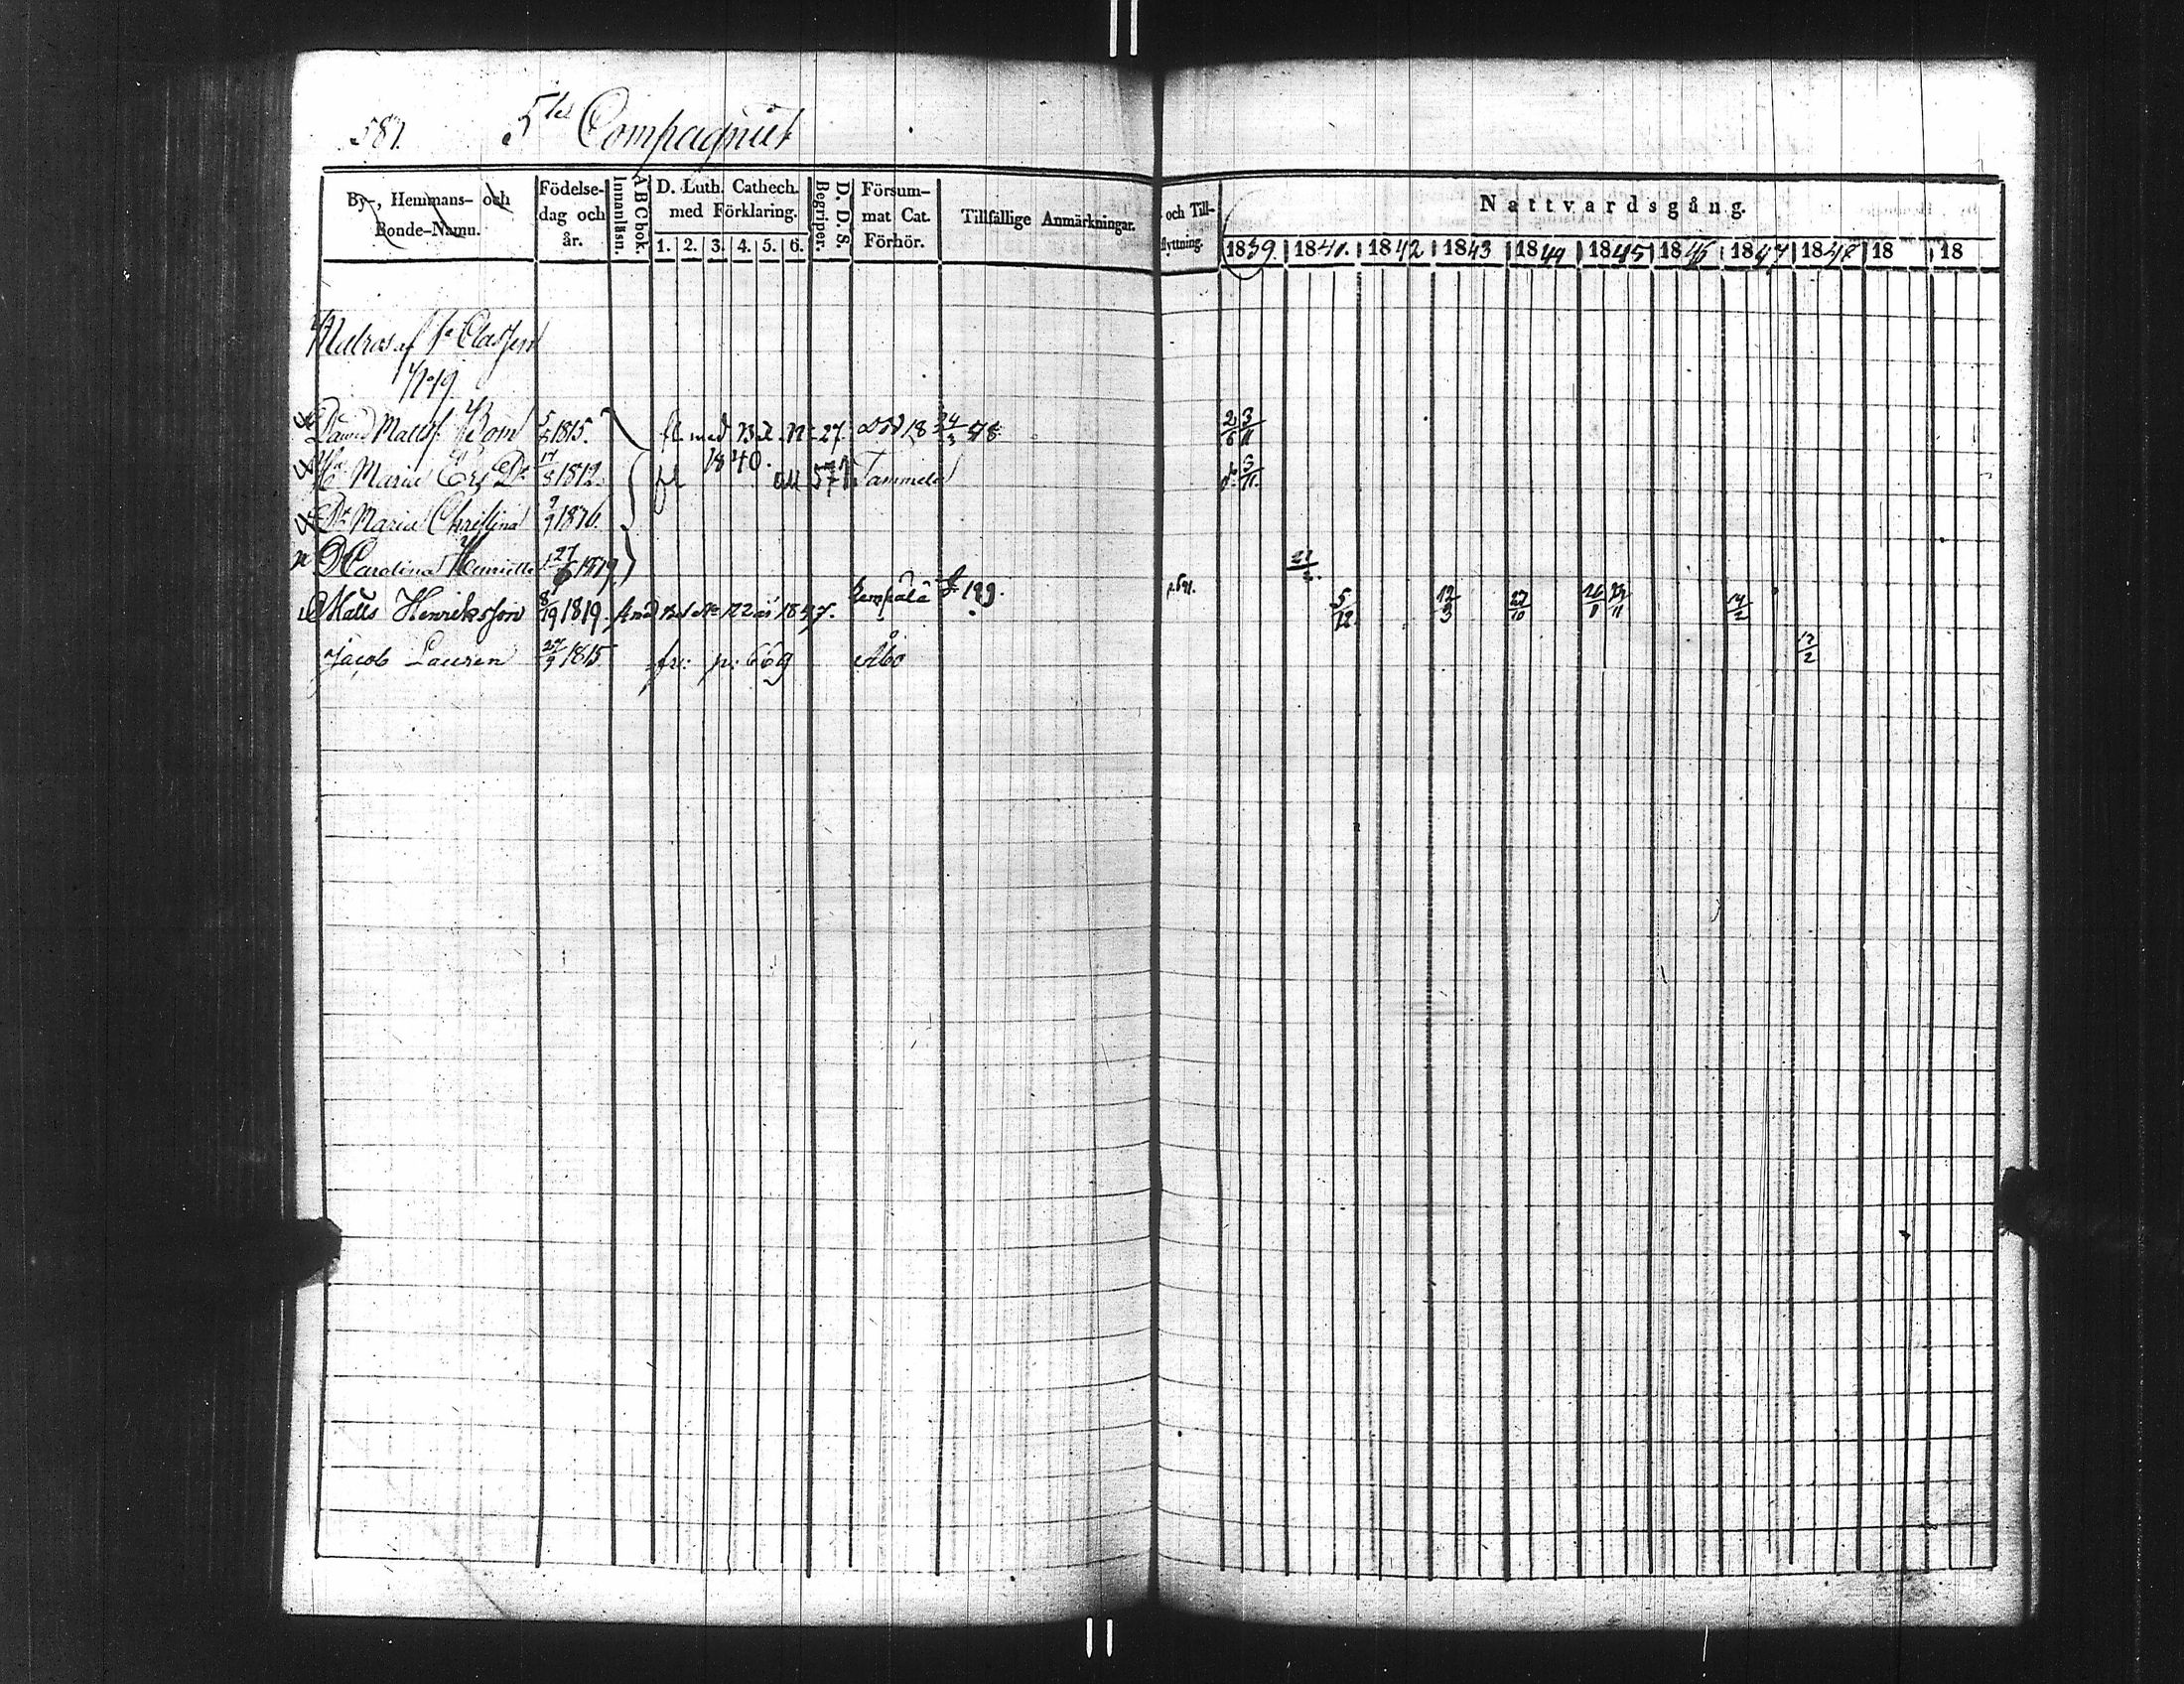 581. 5te Compagniet
By-, Hemmans- och Bonde-Namn.
Födelse-dag och år.
Innanläsn.
A B C bok.
D. Luth. Cathech. med Förklaring.
1. 2. 3. 4. 5. 6.
Begriper.
D. D. S.
Försum-mat Cat. Förhör.
Tillfällige Anmärkningar.
och Till-
flyttning.
Nattvardsgång.
1839. 1841. 1842 1843 1844 1845 1846 1847 1848 18 18
Matros af 1a Classen
No 19
David Matts. Bom 5/5 1815. fl med 27. död 18 24/3 48 2/6 3/11
Hu Maria Ers Dr 1812. fl 1840. Tammela do 3/11
Dr Maria Christina 1836.
D Carolina Henrietta 27/6 1839
Matts Henriksson 8/19 1819. No 122 1847. 199. 5/12 12/3 27/10 14/2
Jacob Lauren 27/9 1815 fr: p: 669 Åbo 13/2